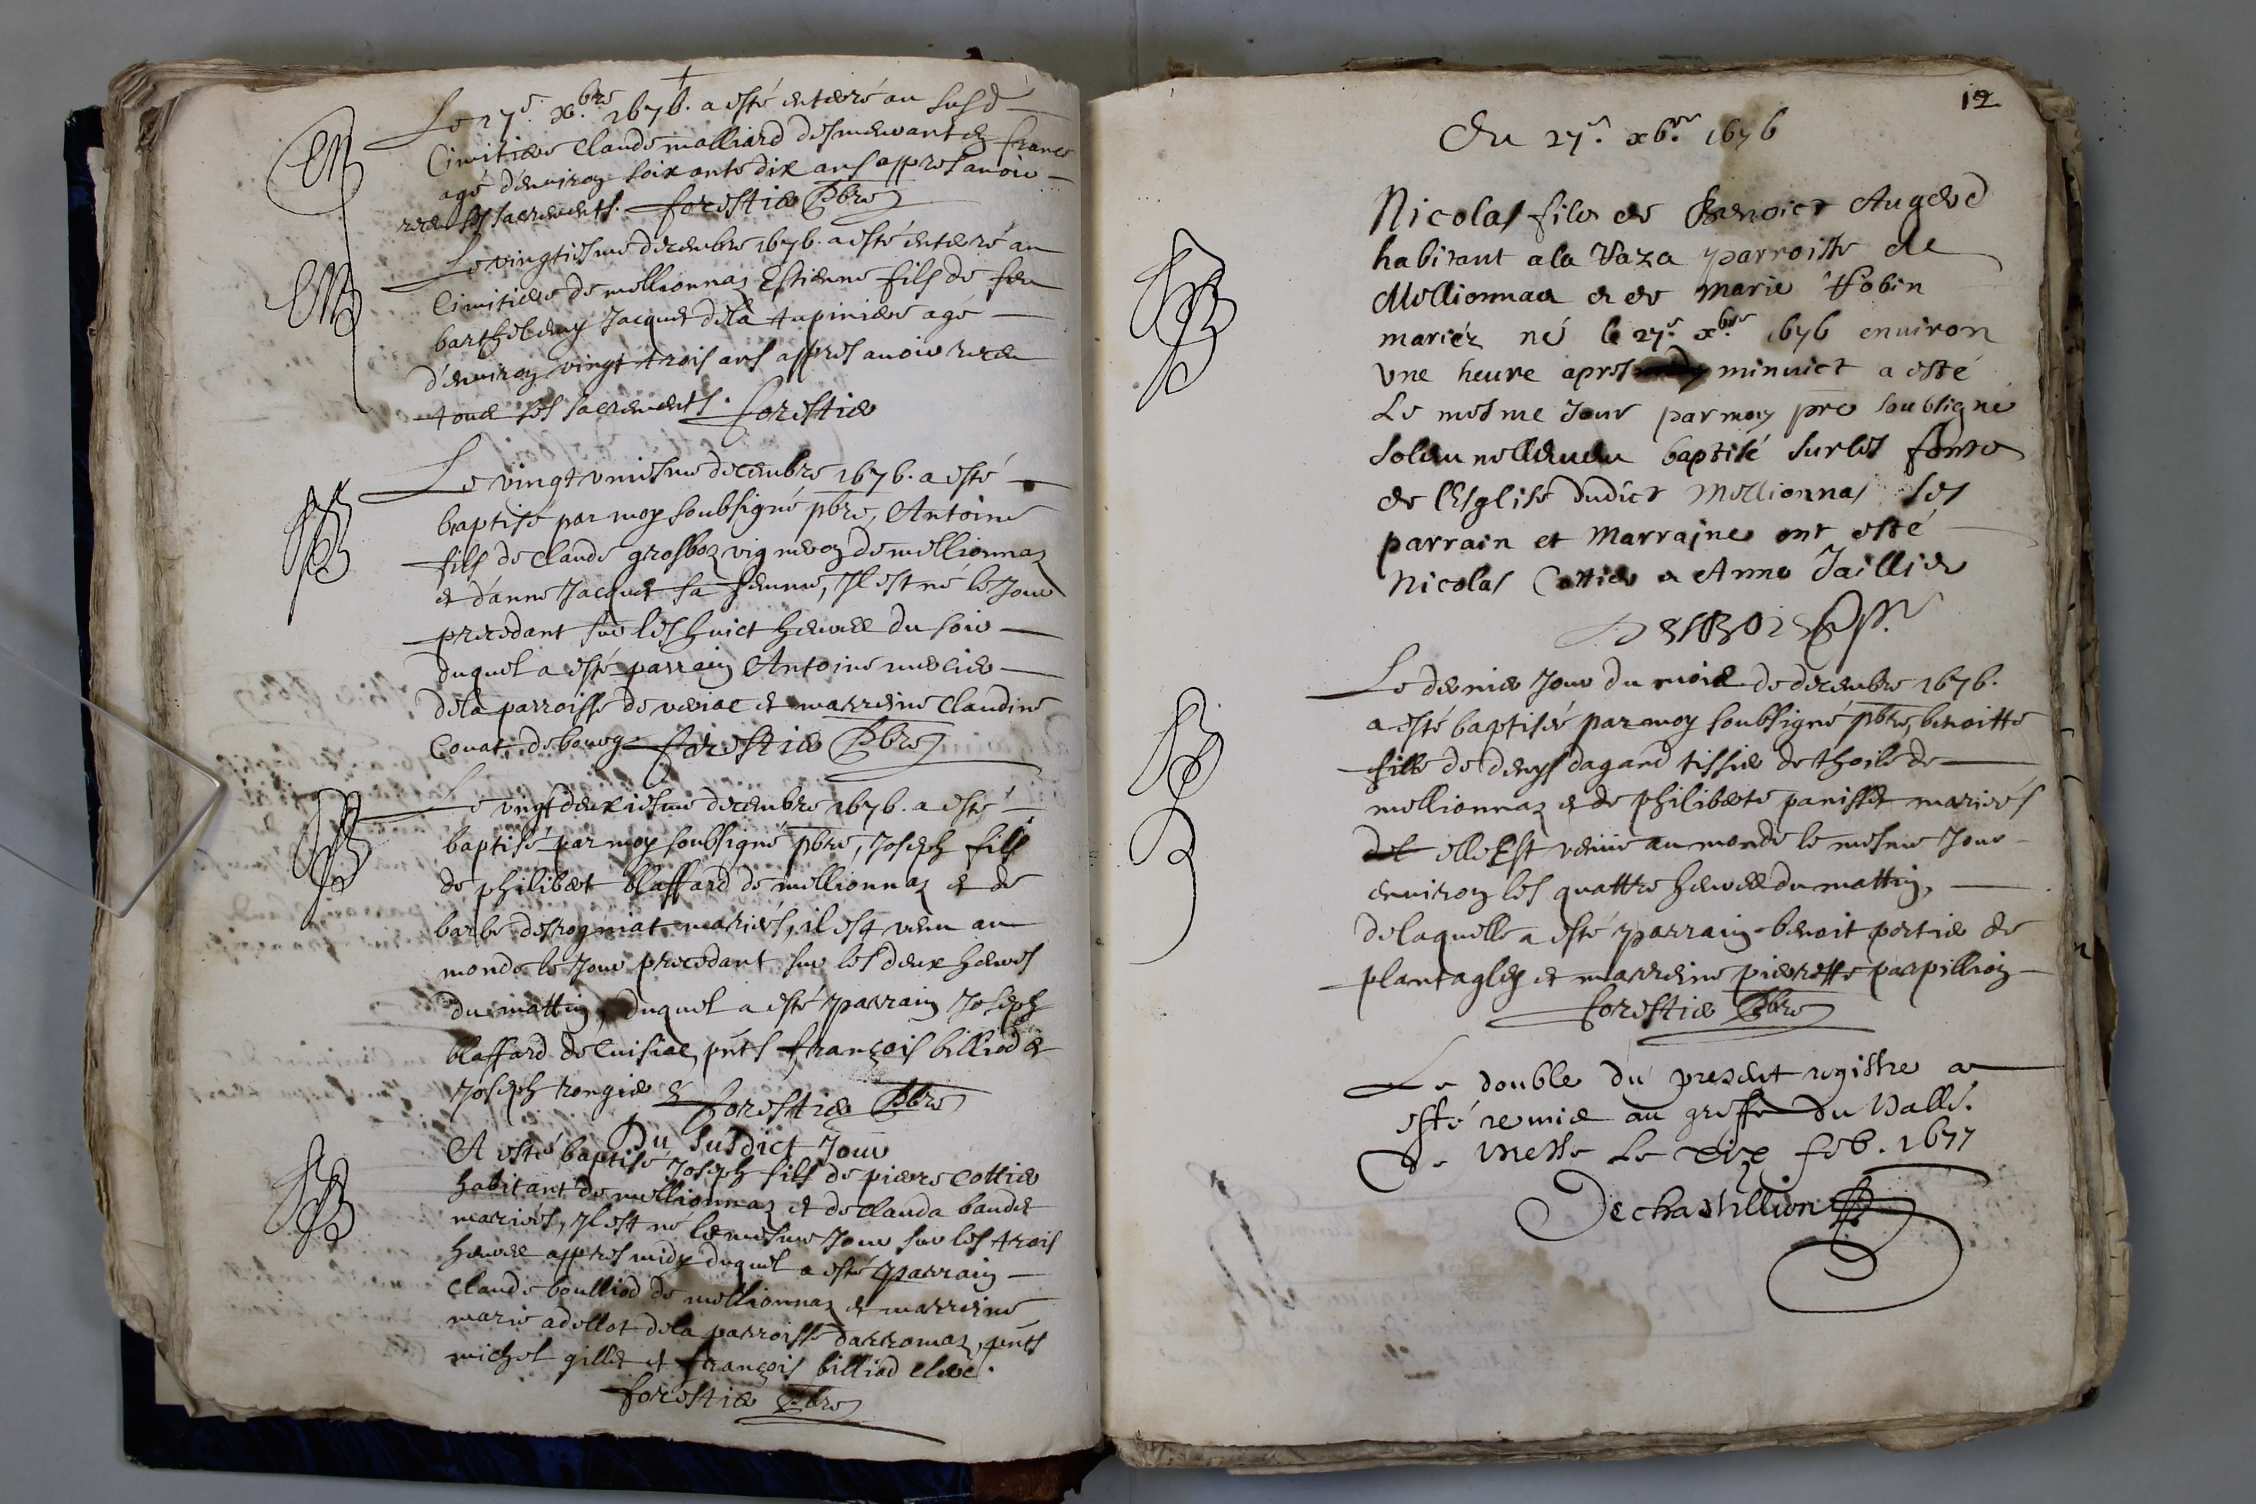 Le 17e xbre 1676. a esté enterré au susd
Cimitiere Claude malliard desmeurant en france
agé d'environ soixante dix ans appres avoir
receu les sacrements. forestier pbre
Le vingtiesme decembre 1676. a esté enterré au
Cimitiere de mellionnaz Estienne fils de feu
barthelemy Jacquet de la tupiniere agé
d'environ vingt trois ans appres avoir receu
tous les sacrements. forestier
Le vingt uniesme decembre 1676. a esté
baptisé par moy soubsigné pbre, Antoine
fils de Claude grosboz vigneron de mellionnaz
et d'anne Jacquet sa femme, Il est né le Jour
precedant sur les huict heures du soir
duquel a esté parrain Antoine mercier
de la parroisse de et marreine Claudine
Convat de bourg forestier pbre
Le vingt deuxiesme decembre 1676. a esté
baptisé par moy soubsigné pbre, Joseph fils
de philibert blaffard de mellionnaz et de
barbe desrogniat mariés, il est venu au
monde le Jour precedant sur les deux heures
du mattin, duquel a esté parrain Joseph
blaffard de Cuisiat, pnts françois billiod et
Joseph rongier forestier pbre
Du susdict Jour
A esté baptisé Joseph fils de pierre Cottier
habitant de mellionnaz et de Clauda baudet
mariés, Il est né le mesme Jour sur les trois
heures appres midy duquel a esté parrain
Claude boulliod de mellionnaz et marreine
marie adellot de la parroisse darromaz, pnts
michel gillet et françois billiod clerc.
forestier pbre
12
Du 27e xbre 1676
Nicolas fils de Benoict Augerd
habitant a la Vaza parroisse de
Mellionnaz et de Marie Gobin
mariéz né le 27e xbre 1676 environ
une heure apres minuict a esté
Le mesme Jour par moy pre soubsigné
solemnellement baptisé sur les fonts
de l'Esglise dudict Mellionnas ses
parrain et Marraine ont esté
Nicolas Cottier et Anne Jaillier
Le dernier Jour du mois de decembre 1676.
a esté baptisée par moy soubsigné pbre, benoitte
fille de denys dagand tissier de thoile de
mellionnaz et de philiberte panisset mariés
elle Est venüe au monde le mesme Jour
environ les quattre heures du mattin,
de laquelle a esté parrain benoit portier de
plantaglay et marreine pierrette parpillion
forestier pbre
Le double du present registre a
esté remis au greffe du Balli.
de Bresse Le dix feb. 1677
Dechastillion